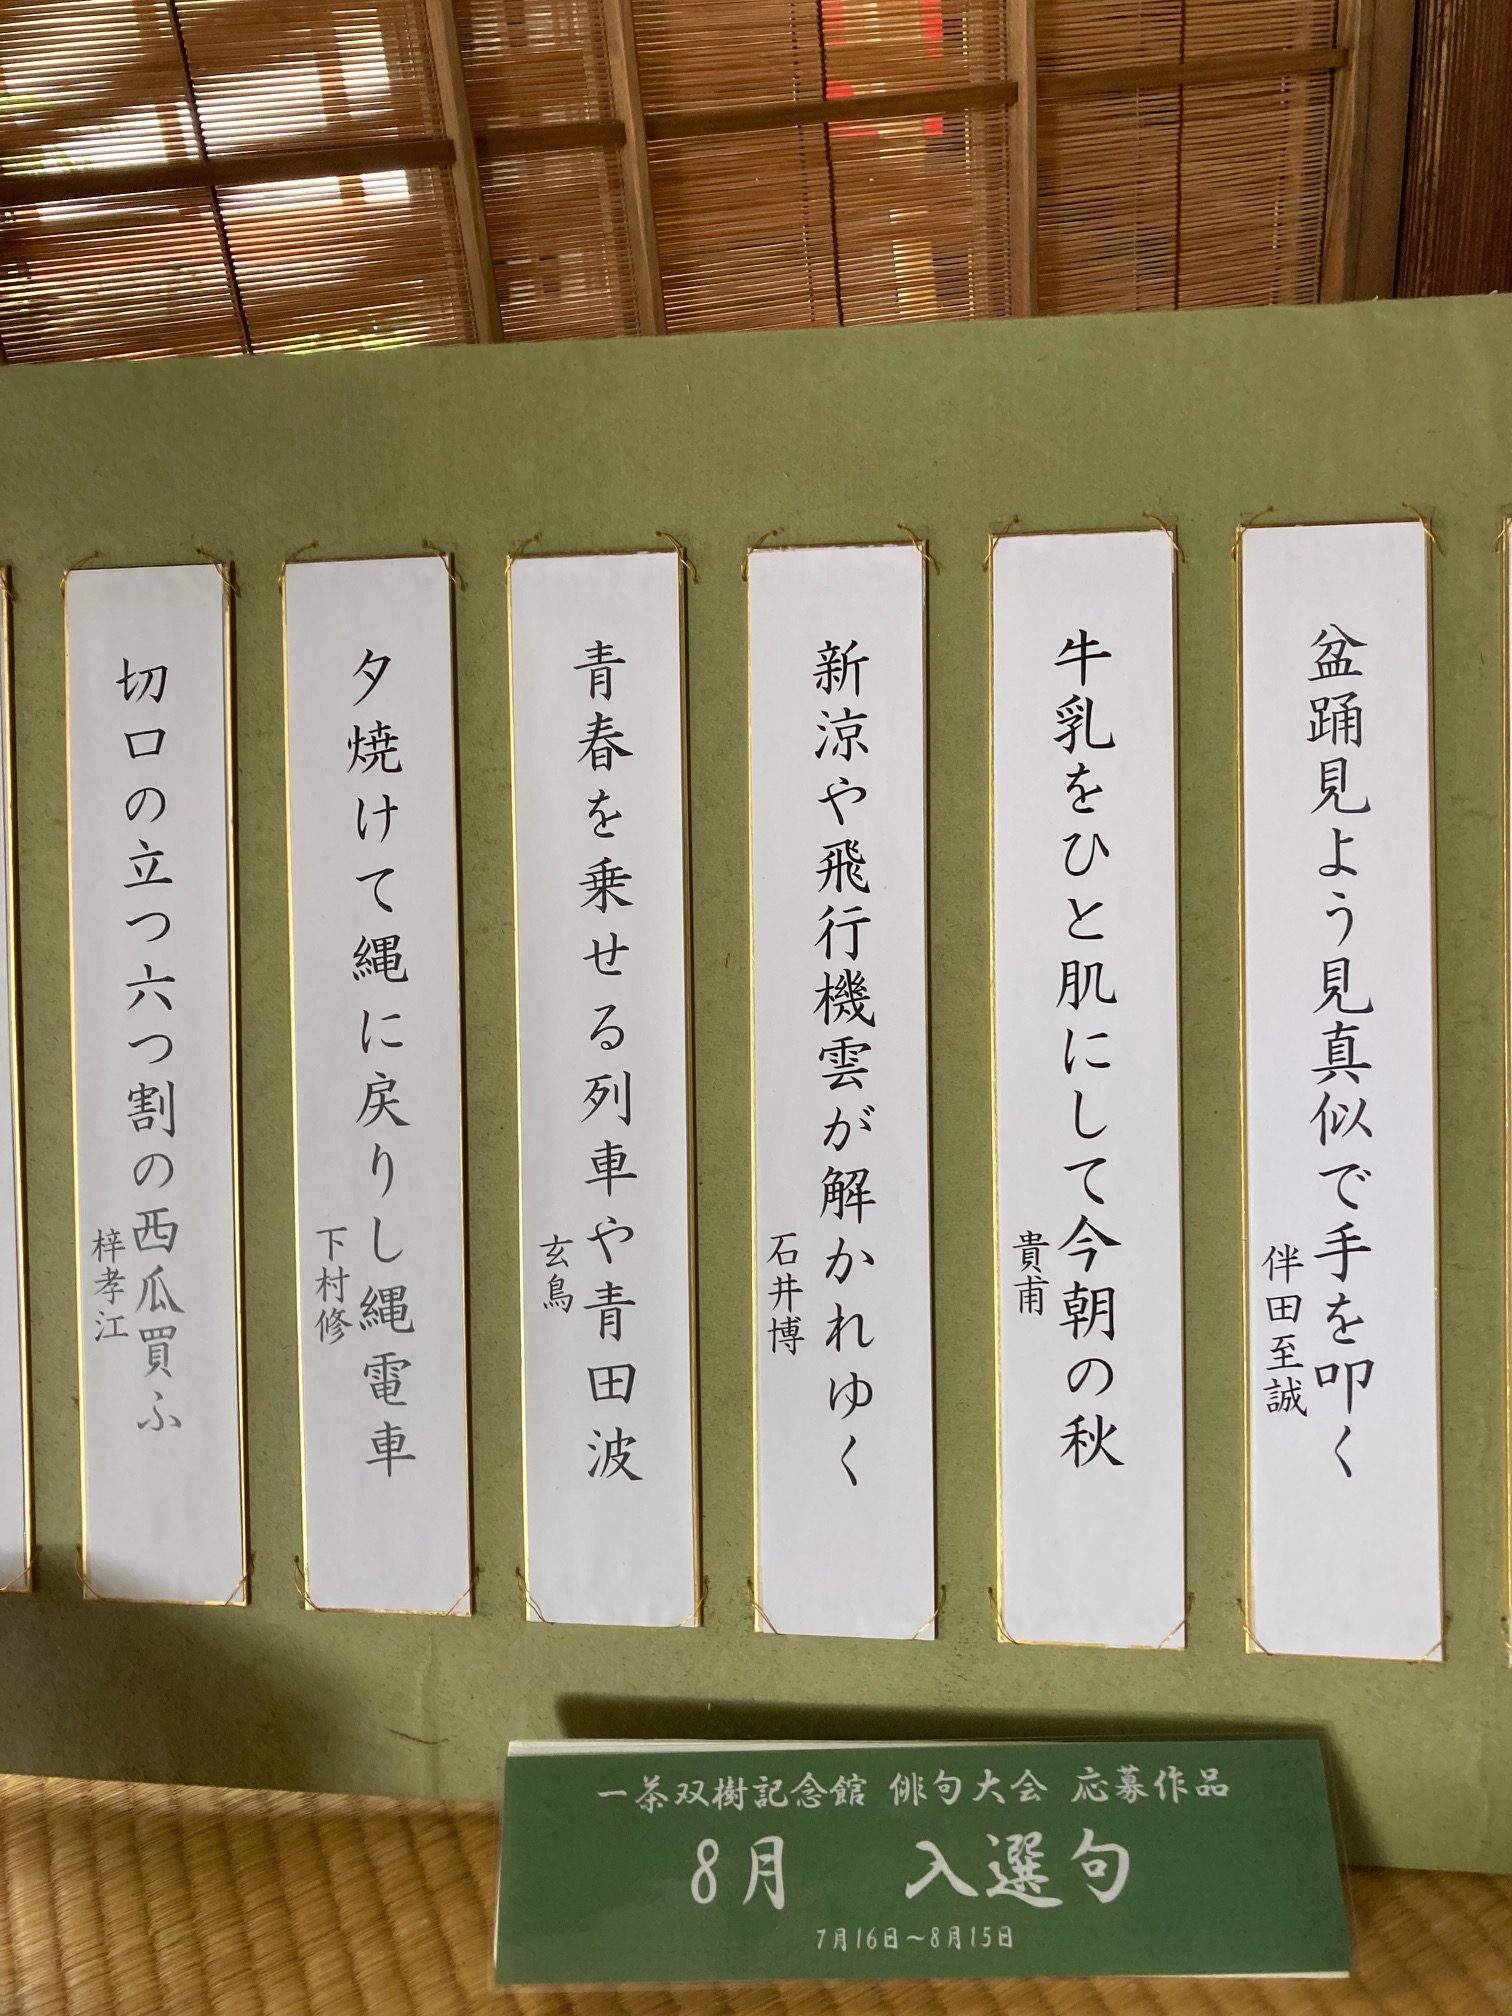 盆踊見よう見真似で手を叩く
伴田至誠
牛乳をひと肌にして今朝の秋
貴甫
新涼や飛行機雲が解かれゆく
石井博
青春を乗せる列車や青田波
玄鳥
夕焼けて縄に戻りし縄電車
下村修
切口の立つ六つ割の西瓜買ふ
梓孝江
一茶双樹記念館 俳句大会 応募作品
8月 入選句
7月16日~8月15日